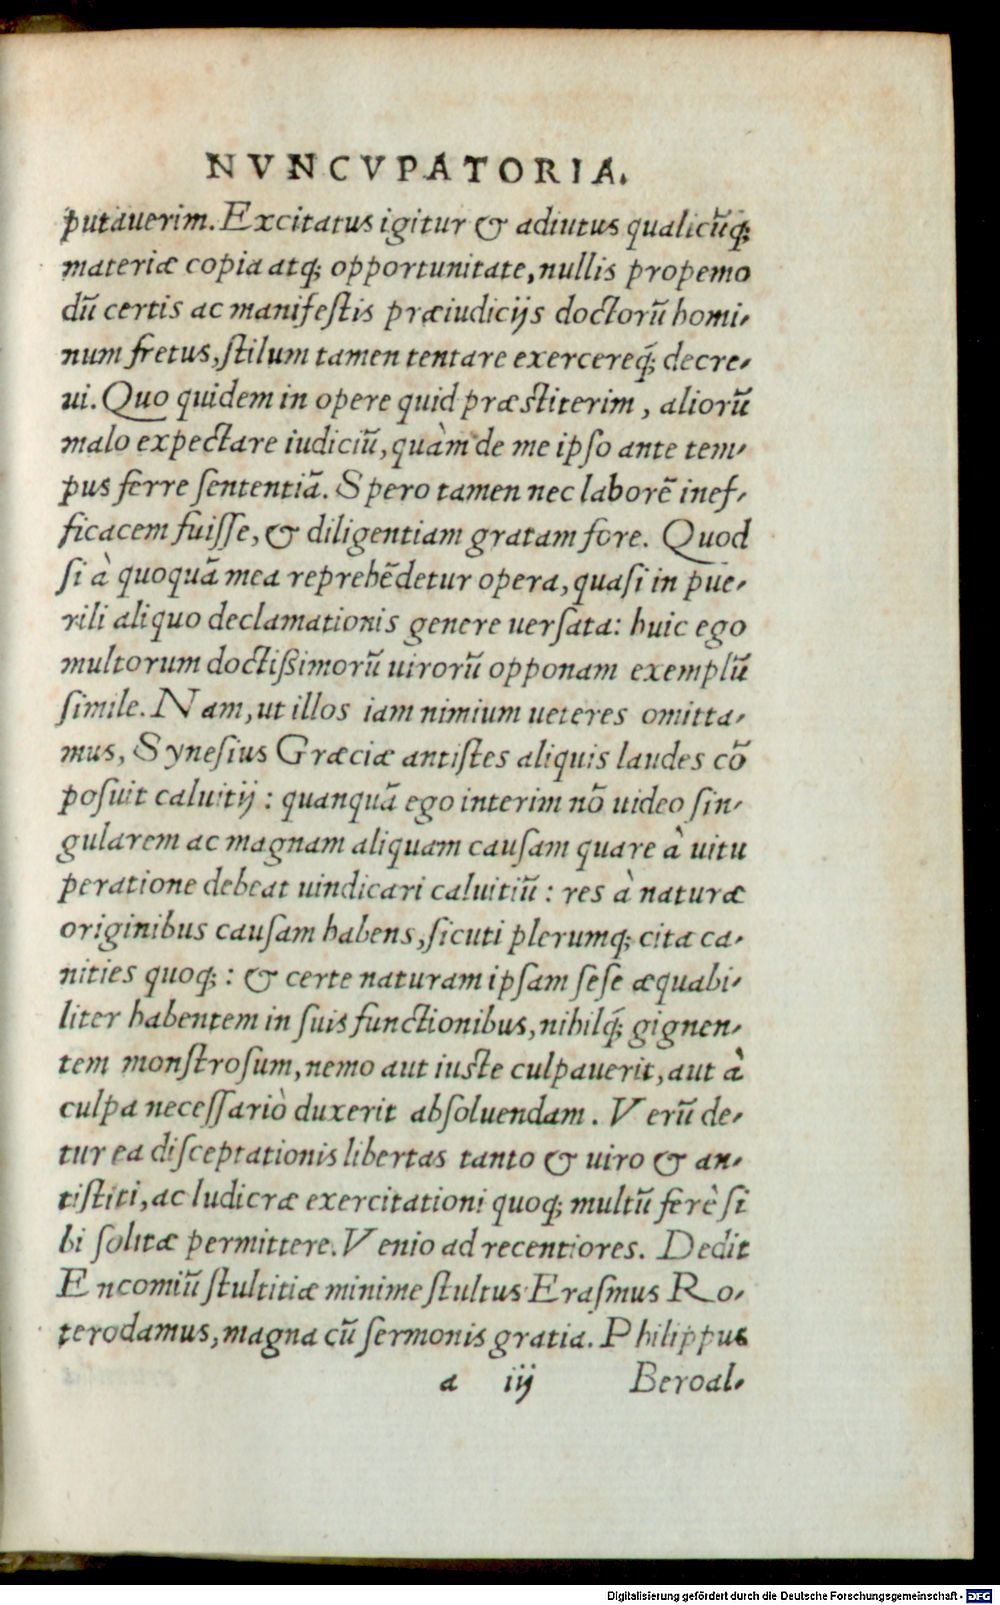 NVNCVPATORIA.
putauerim. Excitatus igitur & adiutus qualicũq;
materiæ copia atq; opportunitate, nullis propemo
dũ certis ac manifestis præiudicijs doctorũ homi-
num fretus, stilum tamen tentare exercereq́; decre-
ui. Quo quidem in opere quid præstiterim, aliorũ
malo expectare iudiciũ, quàm de me ipso ante tem-
pus ferre sententiã. Spero tamen nec laborẽ inef-
ficacem fuisse, & diligentiam gratam fore. Quod
si à quoquã mea reprehẽdetur opera, quasi in pue-
rili aliquo declamationis genere uersata: huic ego
multorum doctißimorũ uirorũ opponam exemplũ
simile. Nam, ut illos iam nimium ueteres omitta-
mus, Synesius Græciæ antistes aliquis laudes cõ
posuit caluitij: quanquã ego interim nõ uideo sin-
gularem ac magnam aliquam causam quare à uitu
peratione debeat uindicari caluitiũ: res à naturæ
originibus causam habens, sicuti plerumq; cita ca-
nities quoq;: & certe naturam ipsam sese æquabi-
liter habentem in suis functionibus, nihilq́; gignen-
tem monstrosum, nemo aut iuste culpauerit, aut à
culpa necessariò duxerit absoluendam. Verũ de-
tur ea disceptationis libertas tanto & uiro & an-
tistiti, ac ludicræ exercitationi quoq; multũ ferè si
bi solitæ permittere. Venio ad recentiores. Dedit
Encomiũ stultitiæ minime stultus Erasmus Ro-
terodamus, magna cũ sermonis gratia. Philippus
a iij Beroal-
Digitalisierung gefördert durch die Deutsche Forschungsgemeinschaft - DFG